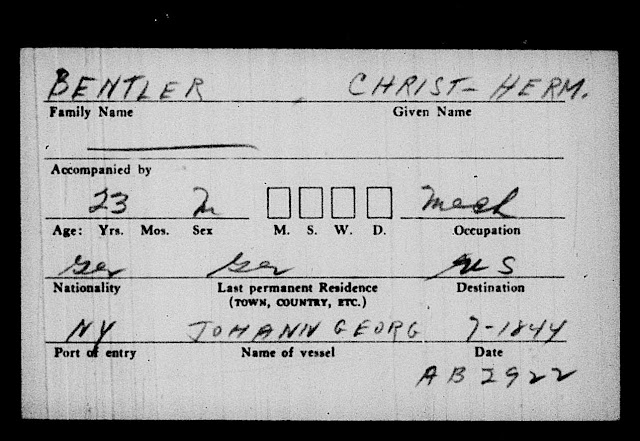 BENTLER CHRIST- HERM.
Family Name Given Name
Accompanied by
23 M Mech
Age: Yrs. Mos. Sex M. S. W. D. Occupation
Ger Ger US
Nationality Last permanent Residence Destination
(TOWN, COUNTRY, ETC.)
NY JOHANN GEORG 7-1844
Port of entry Name of vessel Date
AB 2922